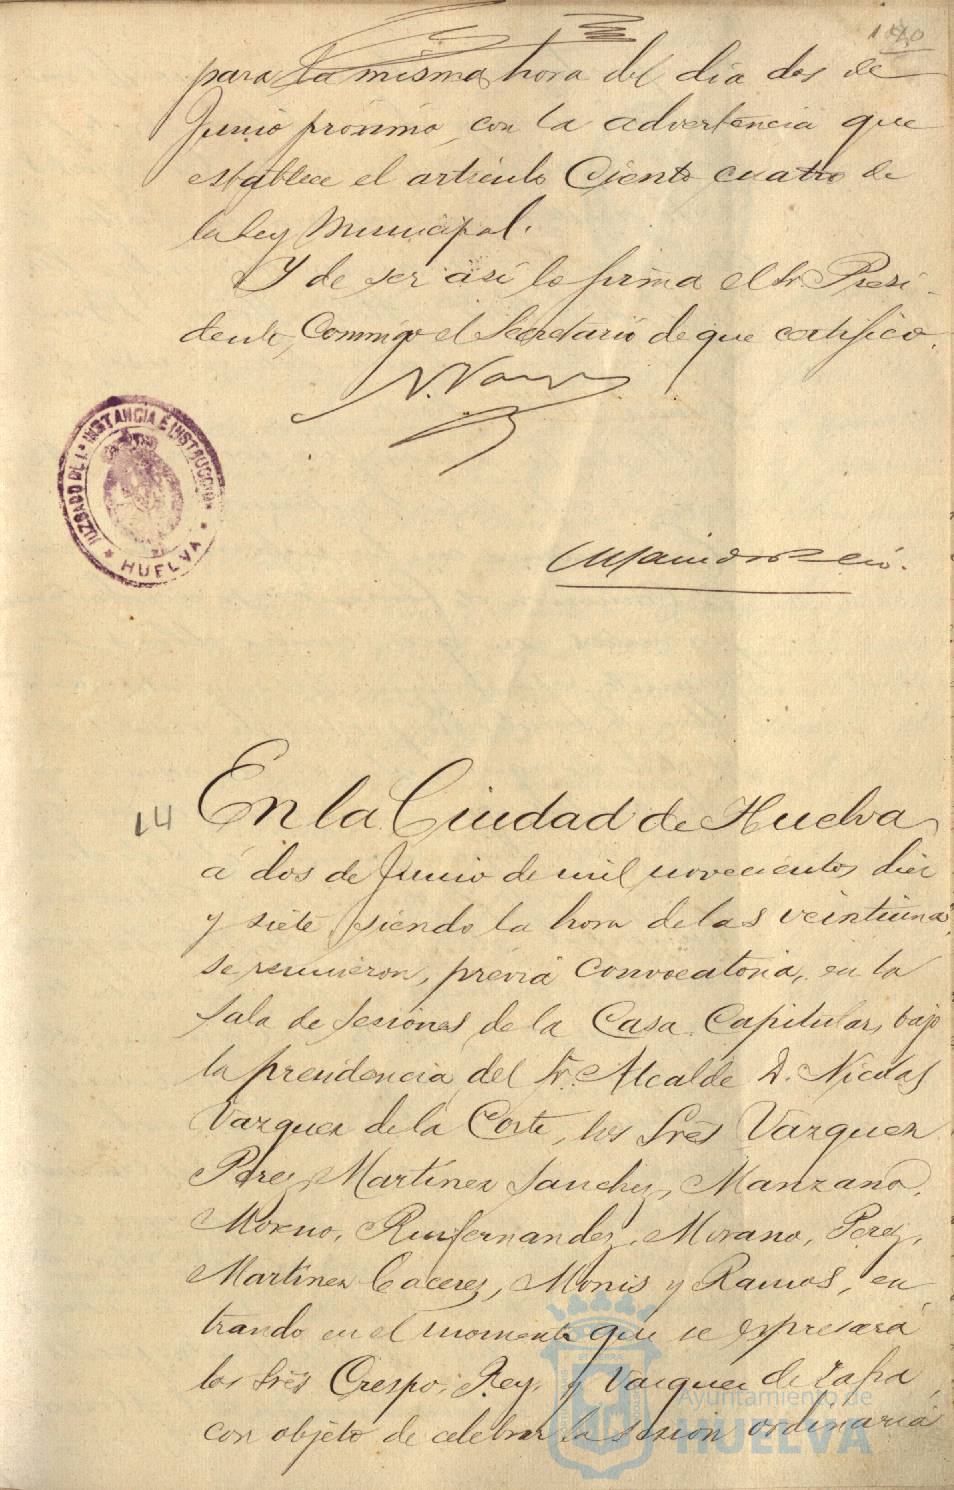 140
para la misma hora del día dos de
Junio próximo, con la advertencia que
establece el artículo Ciento cuatro de
la Ley Municipal.
Y de ser así lo firma el Sr. Presi-
dente, Conmigo el Secretario de que certifico.
N. Vazquez
JUZGADO DE 1ª INSTANCIA E INSTRUCCION
* HUELVA *
14
En la Ciudad de Huelva
á dos de Junio de mil novecientos diez
y siete siendo la hora de las veintiuna
se reunieron, previa convocatoria, en la
Sala de Sesiones de la Casa Capitular, bajo
la presidencia del Sr. Alcalde D. Nicolas
Vazquez de la Corte, los Sres Vazquez
Perez, Martínez Sanchez, Manzano,
Moreno, Ruifernandez, Morano, Perez,
Martínez Caceres, Monis y Ramos, en
trando en el momento que se espresará
los Sres Crespo, Rey, y Vazquez de Zafra,
con objeto de celebrar la sesion ordinaria
Ayuntamiento de
HUELVA